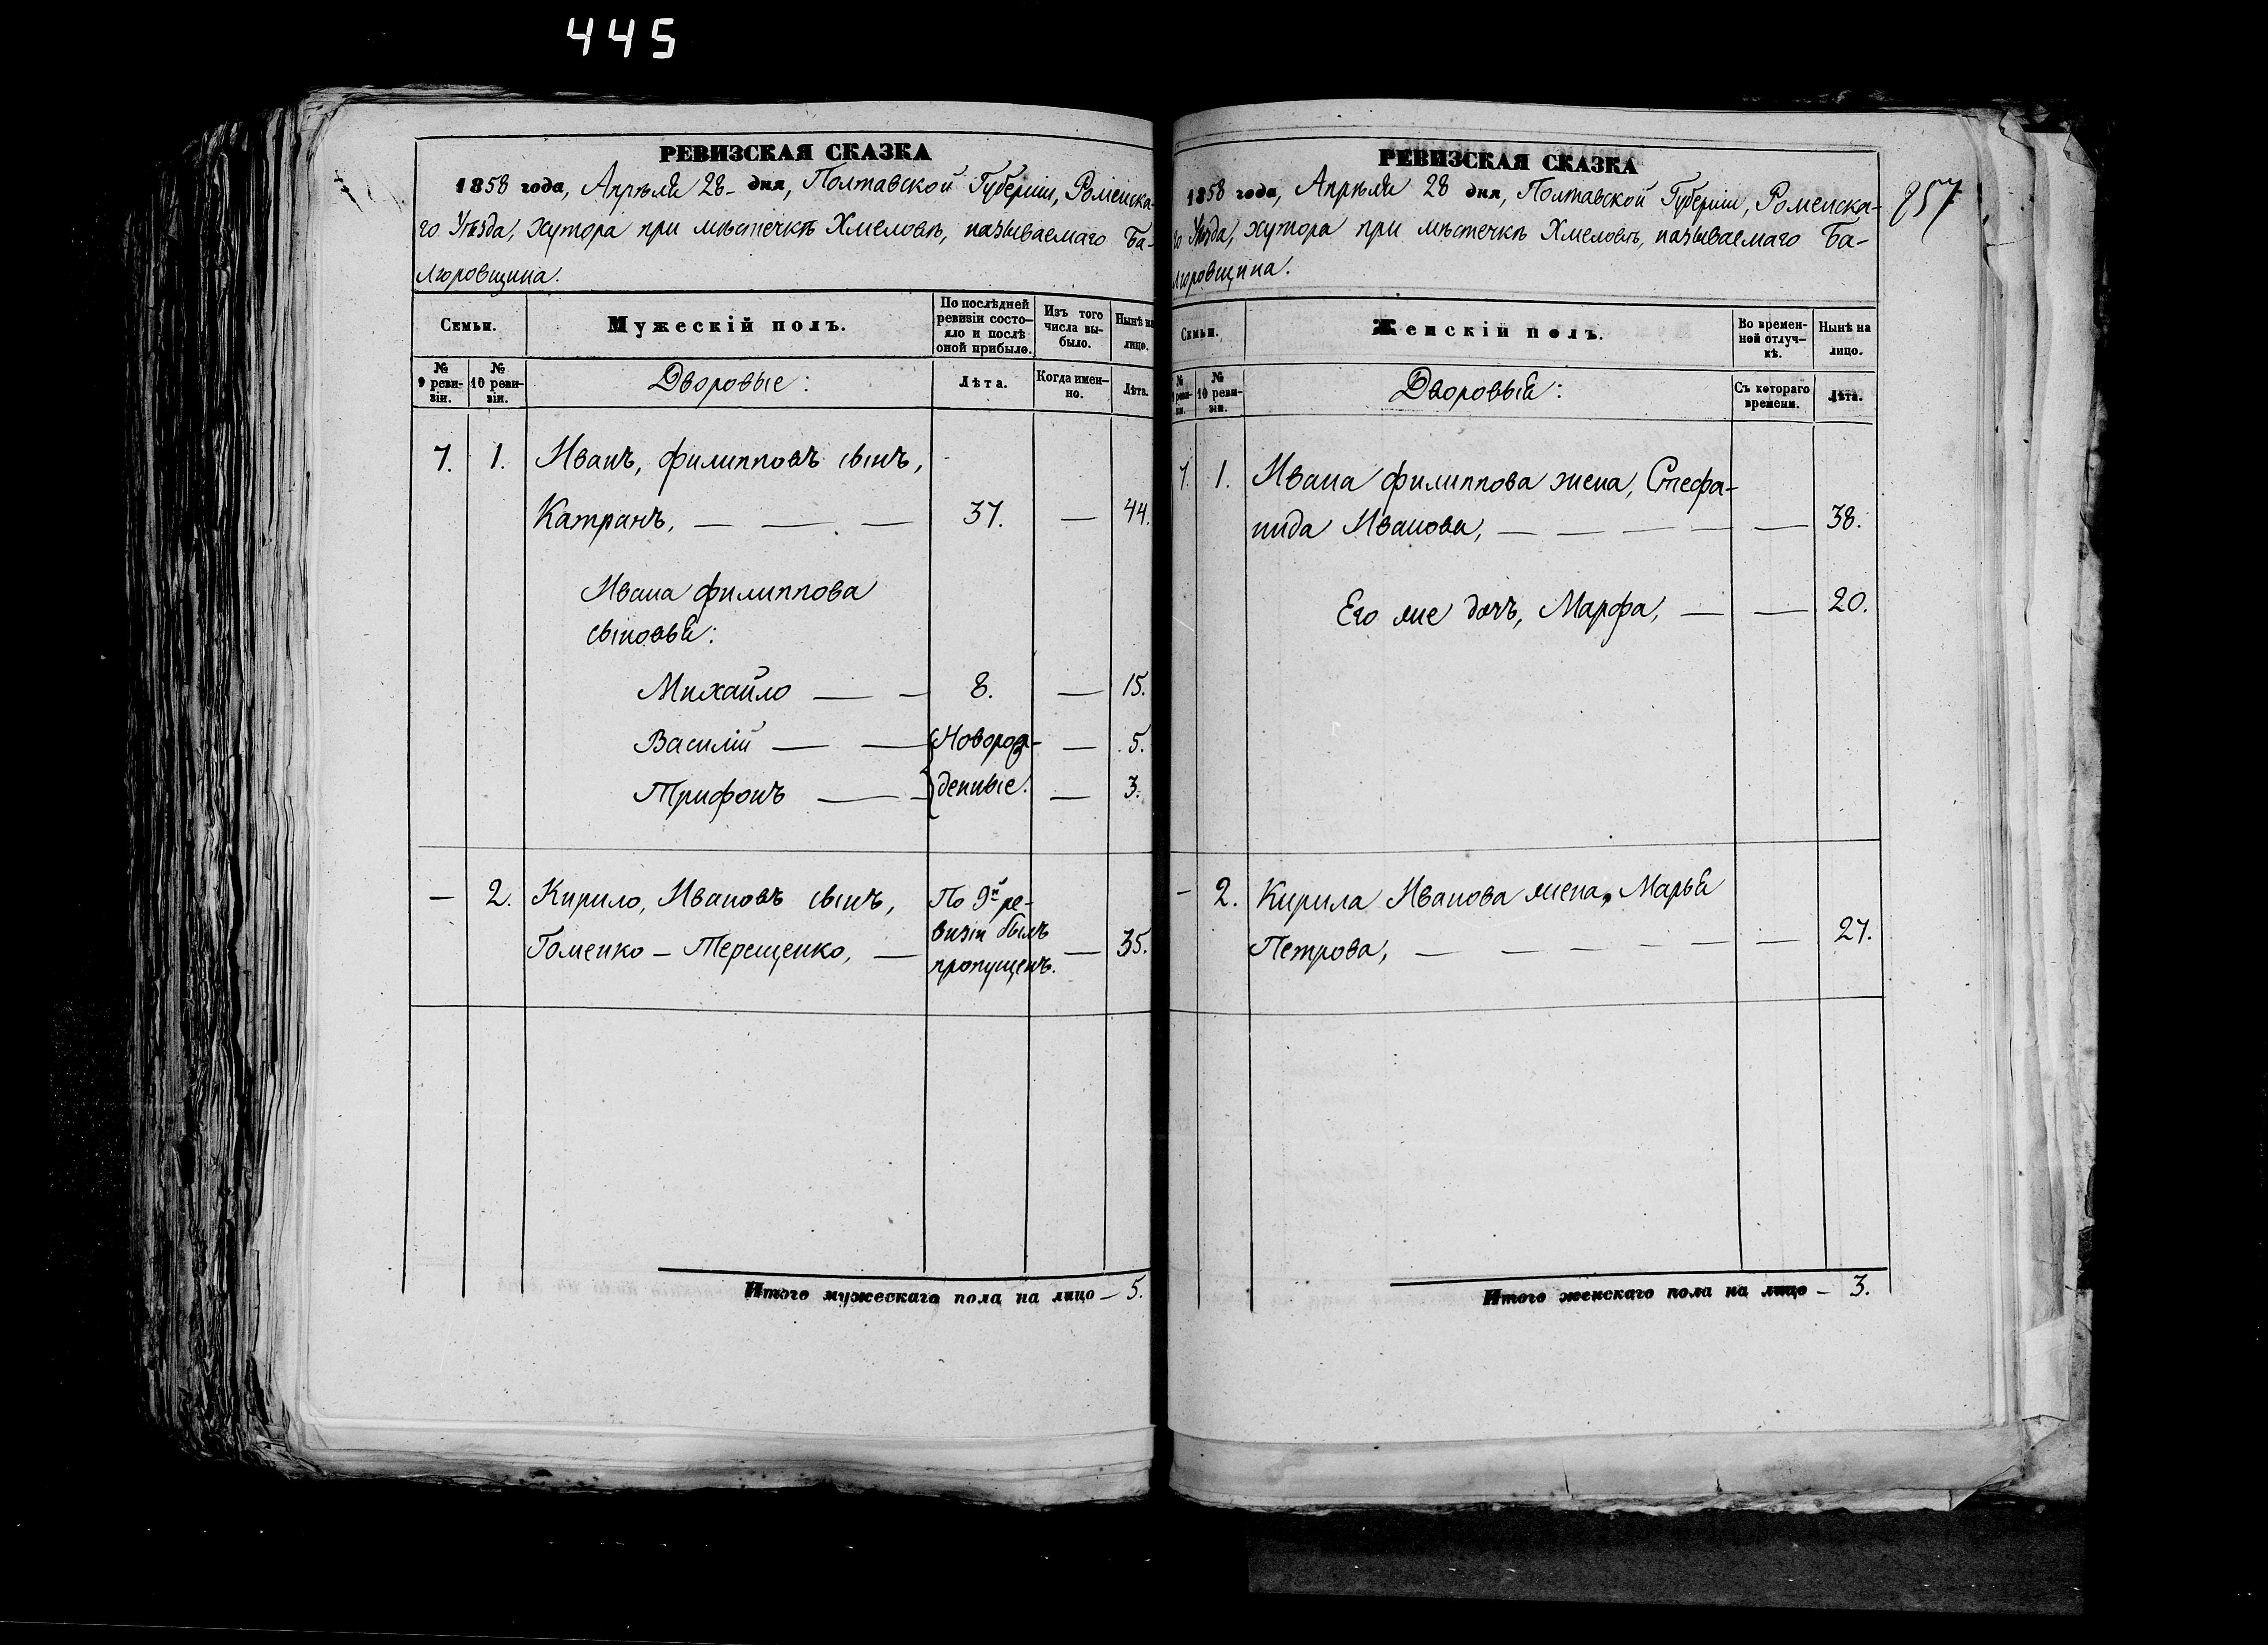 445
РЕВИЗСКАЯ СКАЗКА
1858 года, Апрѣля 28 - дня, Полтавской Губерніи, Роменска-
го Уѣзда, хутора при мѣстечкѣ Хмеловѣ, называемаго Ба-
люровщина.
Семьи.
Мужескій полъ.
По послѣдней
ревизіи состо-
яло и послѣ
оной прибыло.
Изъ того
числа вы-
было.
Нынѣ на
лицо.
№
9 реви-
зіи.
№
10 реви-
зіи.
Дворовые:
Лѣта.
Когда имен-
но.
Лѣта.
7. 1. Иванъ, Филипповъ сынъ,
Катранъ, — — — 37. — 44.
Ивана Филиппова
сыновья:
Михайло — — 8. — 15.
Василій — — Новорож- — 5.
Трифонъ — — денные. — 3.
— 2. Кирило, Ивановъ сынъ, По 9й ре-
визіи былъ
Гоменко - Терещенко, — пропущенъ. — 35.
Итого мужескаго пола на лицо - 5.
РЕВИЗСКАЯ СКАЗКА
1858 года, Апрѣля 28 дня, Полтавской Губерніи, Роменска-
го Уѣзда, хутора при мѣстечкѣ Хмеловѣ, называемаго Ба-
люровщина.
857
Семьи.
Женскій полъ.
Во времен-
ной отлуч-
кѣ.
Нынѣ на
лицо.
№
9 реви-
зіи.
№
10 реви-
зіи.
Дворовыя:
Съ котораго
времени.
Лѣта.
7. 1. Ивана Филиппова жена, Стефа-
нида Иванова, — — — — — 38.
Его же дочь, Марфа, — — 20.
— 2. Кирила Иванова жена, Марья
Петрова, — — — — — — 27.
Итого женскаго пола на лицо - 3.